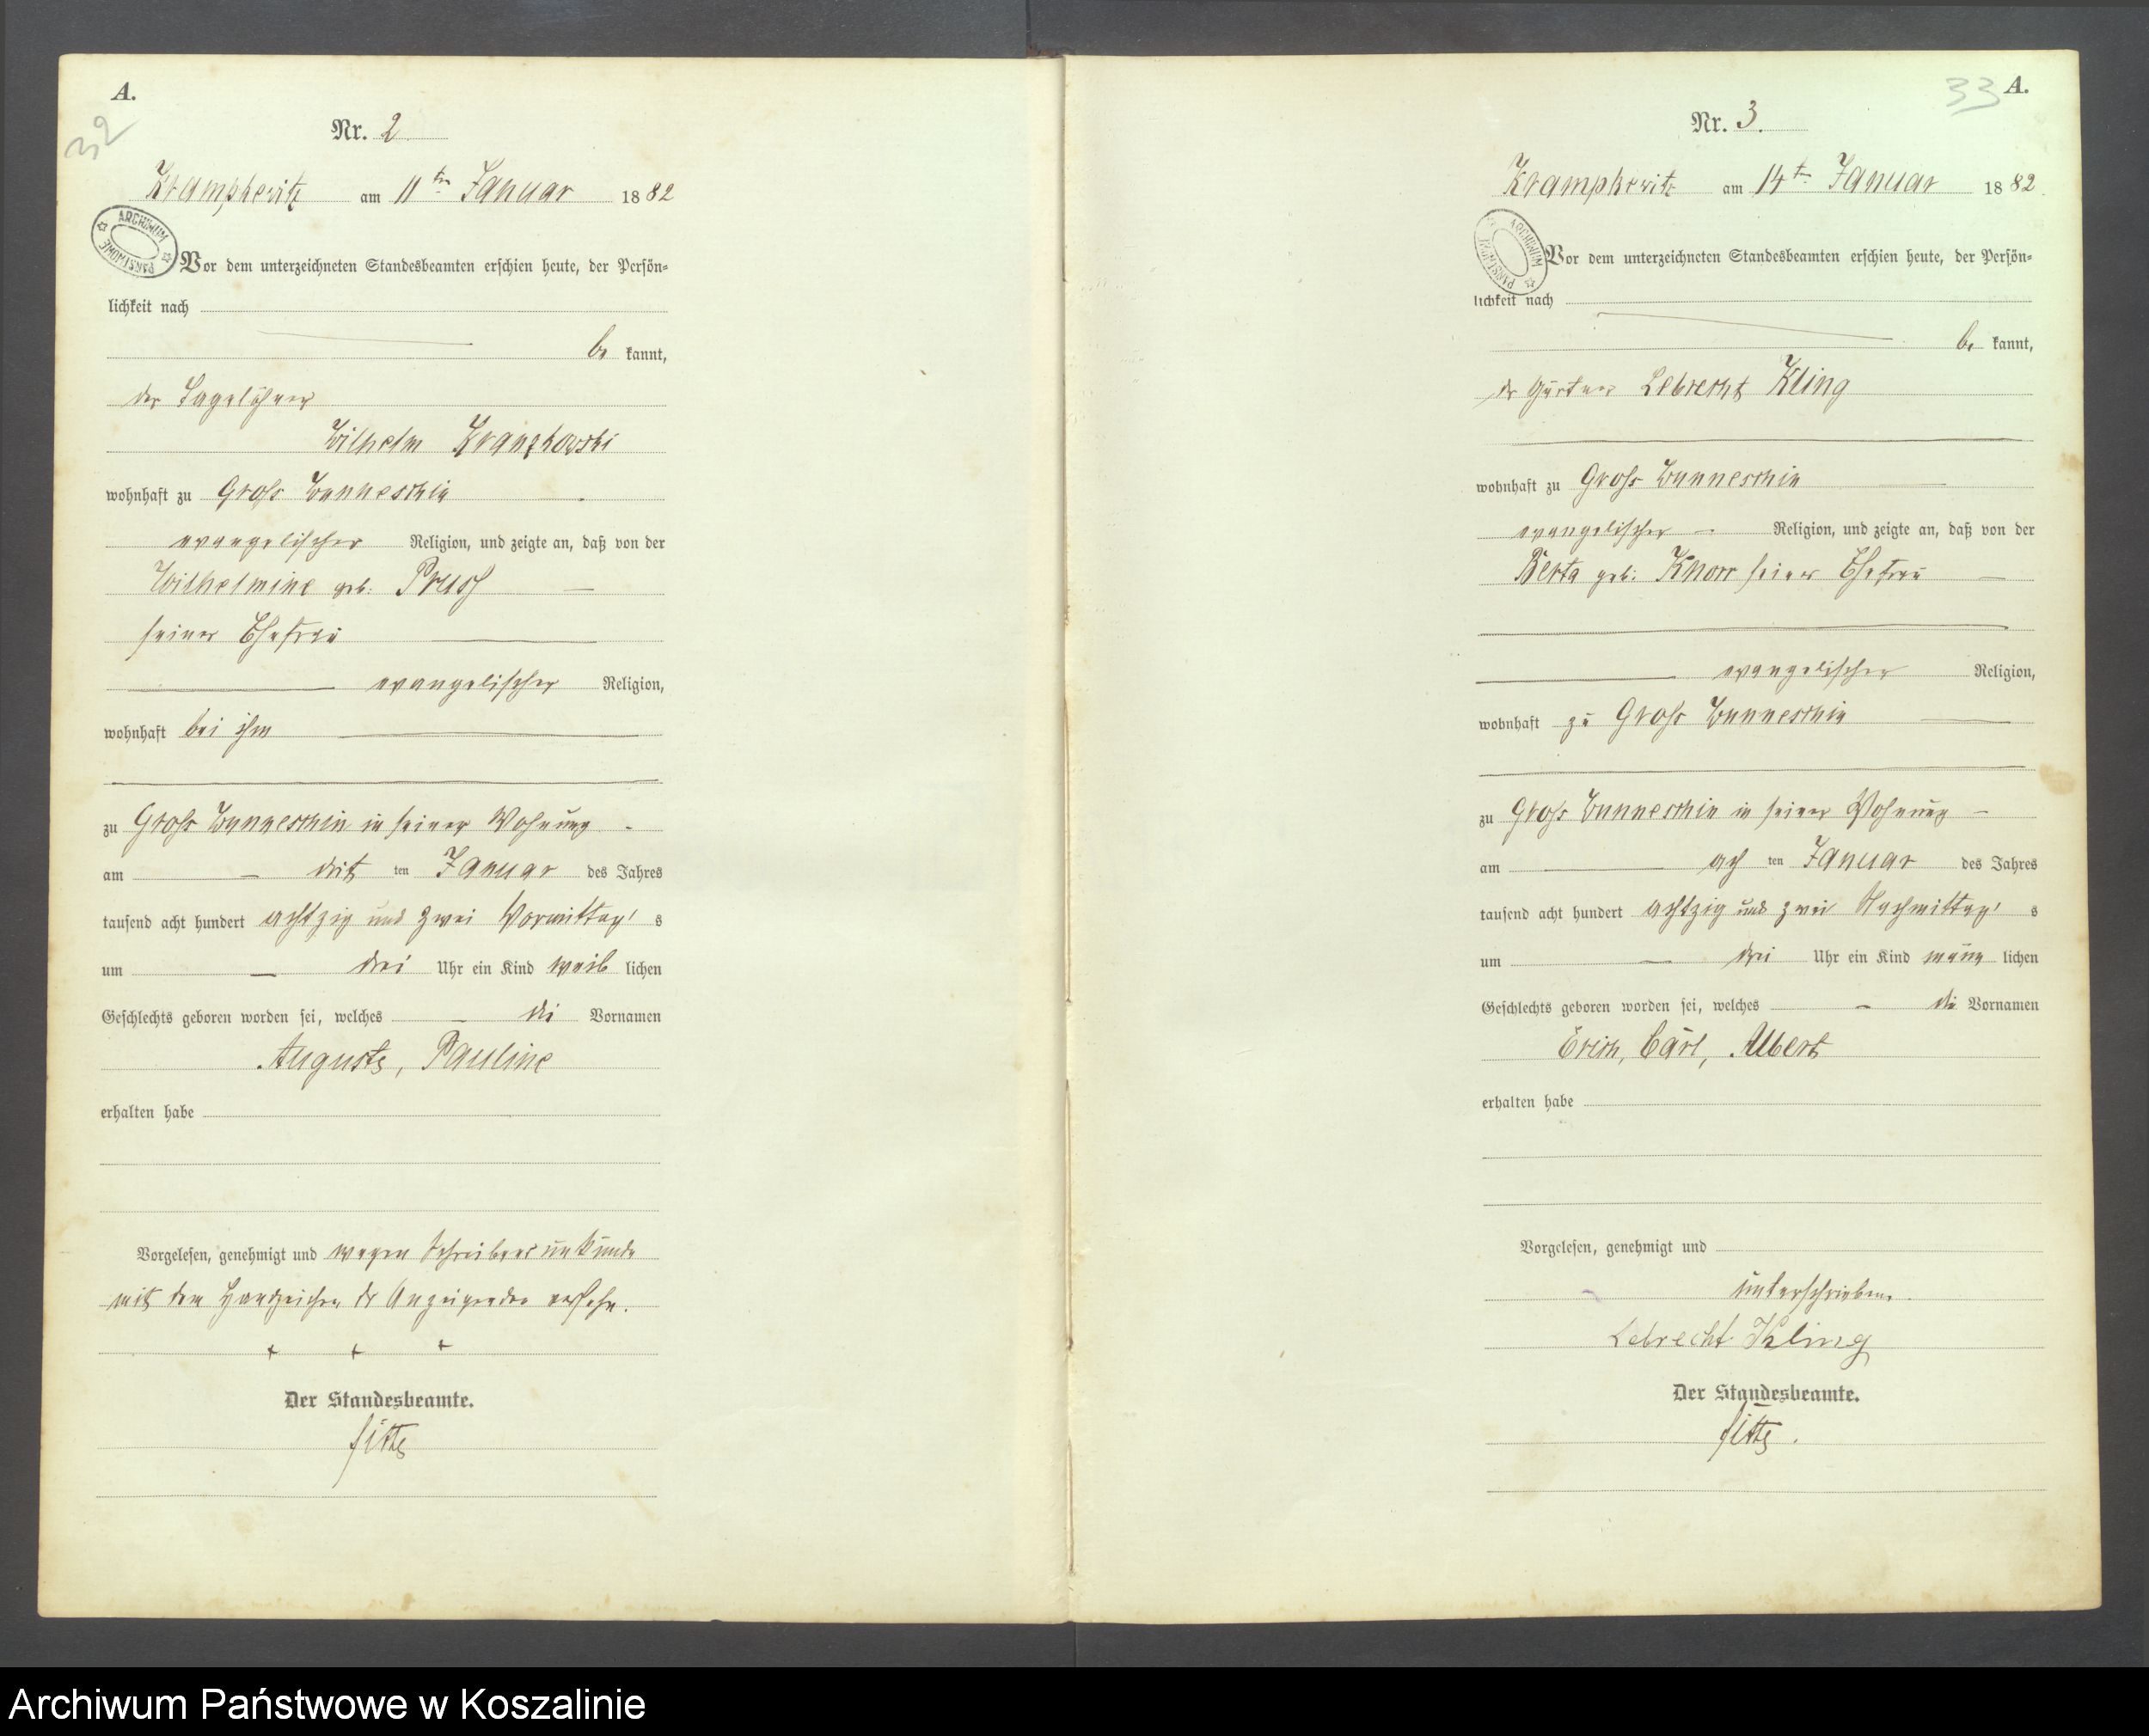 A.
32
Nr. 2
Krampkewitz am 11ten Januar 1882
ARCHIWUM PAŃSTWOWE
Vor dem unterzeichneten Standesbeamten erschien heute, der Persön-
lichkeit nach
be kannt,
der Tagelöhner
Wilhelm Kranzkowski
wohnhaft zu Gross Wunneschin
evangelischer Religion, und zeigte an, daß von der
Wilhelmine geb:
seiner Ehefrau
evangelischer Religion,
wohnhaft bei ihm
zu Gross Wunneschin in seiner Wohnung
am drit ten Januar des Jahres
tausend acht hundert achtzig und zwei Vormittag's
um drei Uhr ein Kind weib lichen
Geschlechts geboren worden sei, welches die Vornamen
Auguste, Pauline
erhalten habe
Vorgelesen, genehmigt und wegen Schreibens unkunde
mit dem Handzeichen des Anzeigenden versehn.
+ + +
Der Standesbeamte.
A.
33
Nr. 3.
Krampkewitz am 14ten Januar 1882.
ARCHIWUM PAŃSTWOWE
Vor dem unterzeichneten Standesbeamten erschien heute, der Persön-
lichkeit nach
be kannt,
der Gärtner Lebrecht Kling
wohnhaft zu Gross Wunneschin
evangelischer Religion, und zeigte an, daß von der
Berta geb: Knorr seiner Ehefrau
evangelischer Religion,
wohnhaft zu Gross Wunneschin
zu Gross Wunneschin in seiner Wohnung
am ach ten Januar des Jahres
tausend acht hundert achtzig und zwei Nachmittag's
um drei Uhr ein Kind männ lichen
Geschlechts geboren worden sei, welches die Vornamen
Erich, Carl, Albert
erhalten habe
Vorgelesen, genehmigt und
unterschrieben.
Lebrecht Kling
Der Standesbeamte.
Archiwum Państwowe w Koszalinie